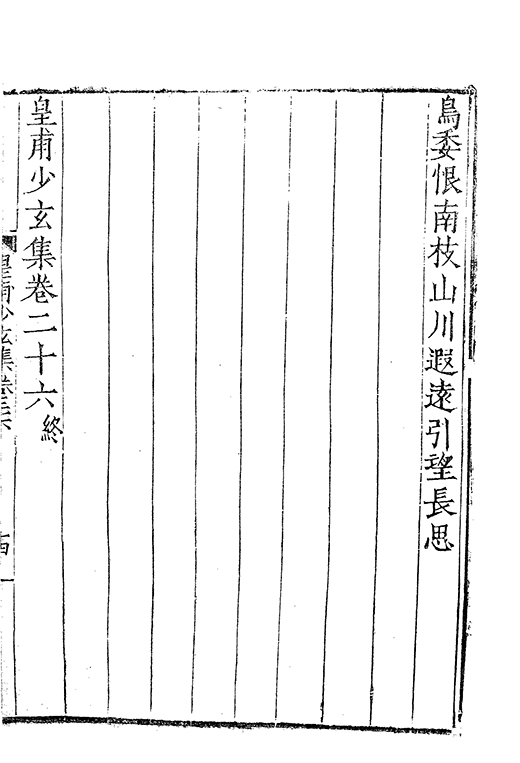 鳥委恨南枝山川遐遠引望長思
皇甫少玄集卷二十六終
皇甫少玄集卷二十六